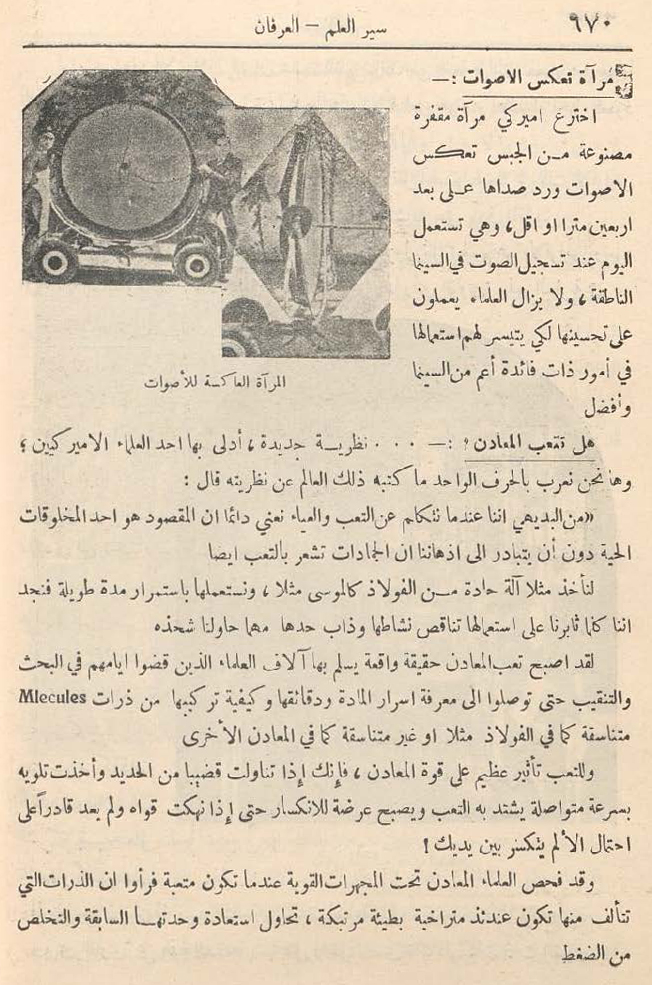 ٩٧٠
سير العلم – العرفان
مرآة تعكس الاصوات :—
اخترع اميركي مرآة مقفرة
مصنوعة من الجبس تعكس
الاصوات ورد صداها على بعد
اربعين مترا او اقل، وهي تستعمل
اليوم عند تسجيل الصوت في السينما
الناطقة، ولا يزال العلماء يعملون
على تحسينها لكي يتيسر لهم استعمالها
في أمور ذات فائدة أعم من السينما
وأفضل
المرآة العاكسة للأصوات
هل تتعب المعادن؟ :— ... نظرية جديدة، أدلى بها احد العلماء الاميركيين؛
وها نحن نعرب بالحرف الواحد ما كتبه ذلك العالم عن نظريته قال :
«من البديهي اننا عندما نتكلم عن التعب والعياء نعني دائما ان المقصود هو احد المخلوقات
الحية دون أن يتبادر الى اذهاننا ان الجمادات تشعر بالتعب ايضا
لنأخذ مثلا آلة حادة من الفولاذ كالموسى مثلا، ونستعملها باستمرار مدة طويلة فنجد
اننا كلما ثابرنا على استعمالها تناقص نشاطها وذاب حدها مهما حاولنا شحذه
لقد اصبح تعب المعادن حقيقة واقعة يسلم بها آلاف العلماء الذين قضوا ايامهم في البحث
والتنقيب حتى توصلوا الى معرفة اسرار المادة ودقائقها وكيفية تركيبها من ذرات Mlecules
متناسقة كما في الفولاذ مثلا او غير متناسقة كما في المعادن الأخرى
وللتعب تأثير عظيم على قوة المعادن، فإنك إذا تناولت قضيبا من الحديد وأخذت تلويه
بسرعة متواصلة يشتد به التعب ويصبح عرضة للانكسار حتى إذا نهكت قواه ولم يعد قادراً على
احتمال الألم يتكسر بين يديك!
وقد فحص العلماء المعادن تحت المجهرات القوية عندما تكون متعبة فرأوا ان الذرات التي
تتألف منها تكون عندئذ متراخية بطيئة مرتبكة، تحاول استعادة وحدتها السابقة والتخلص
من الضغط